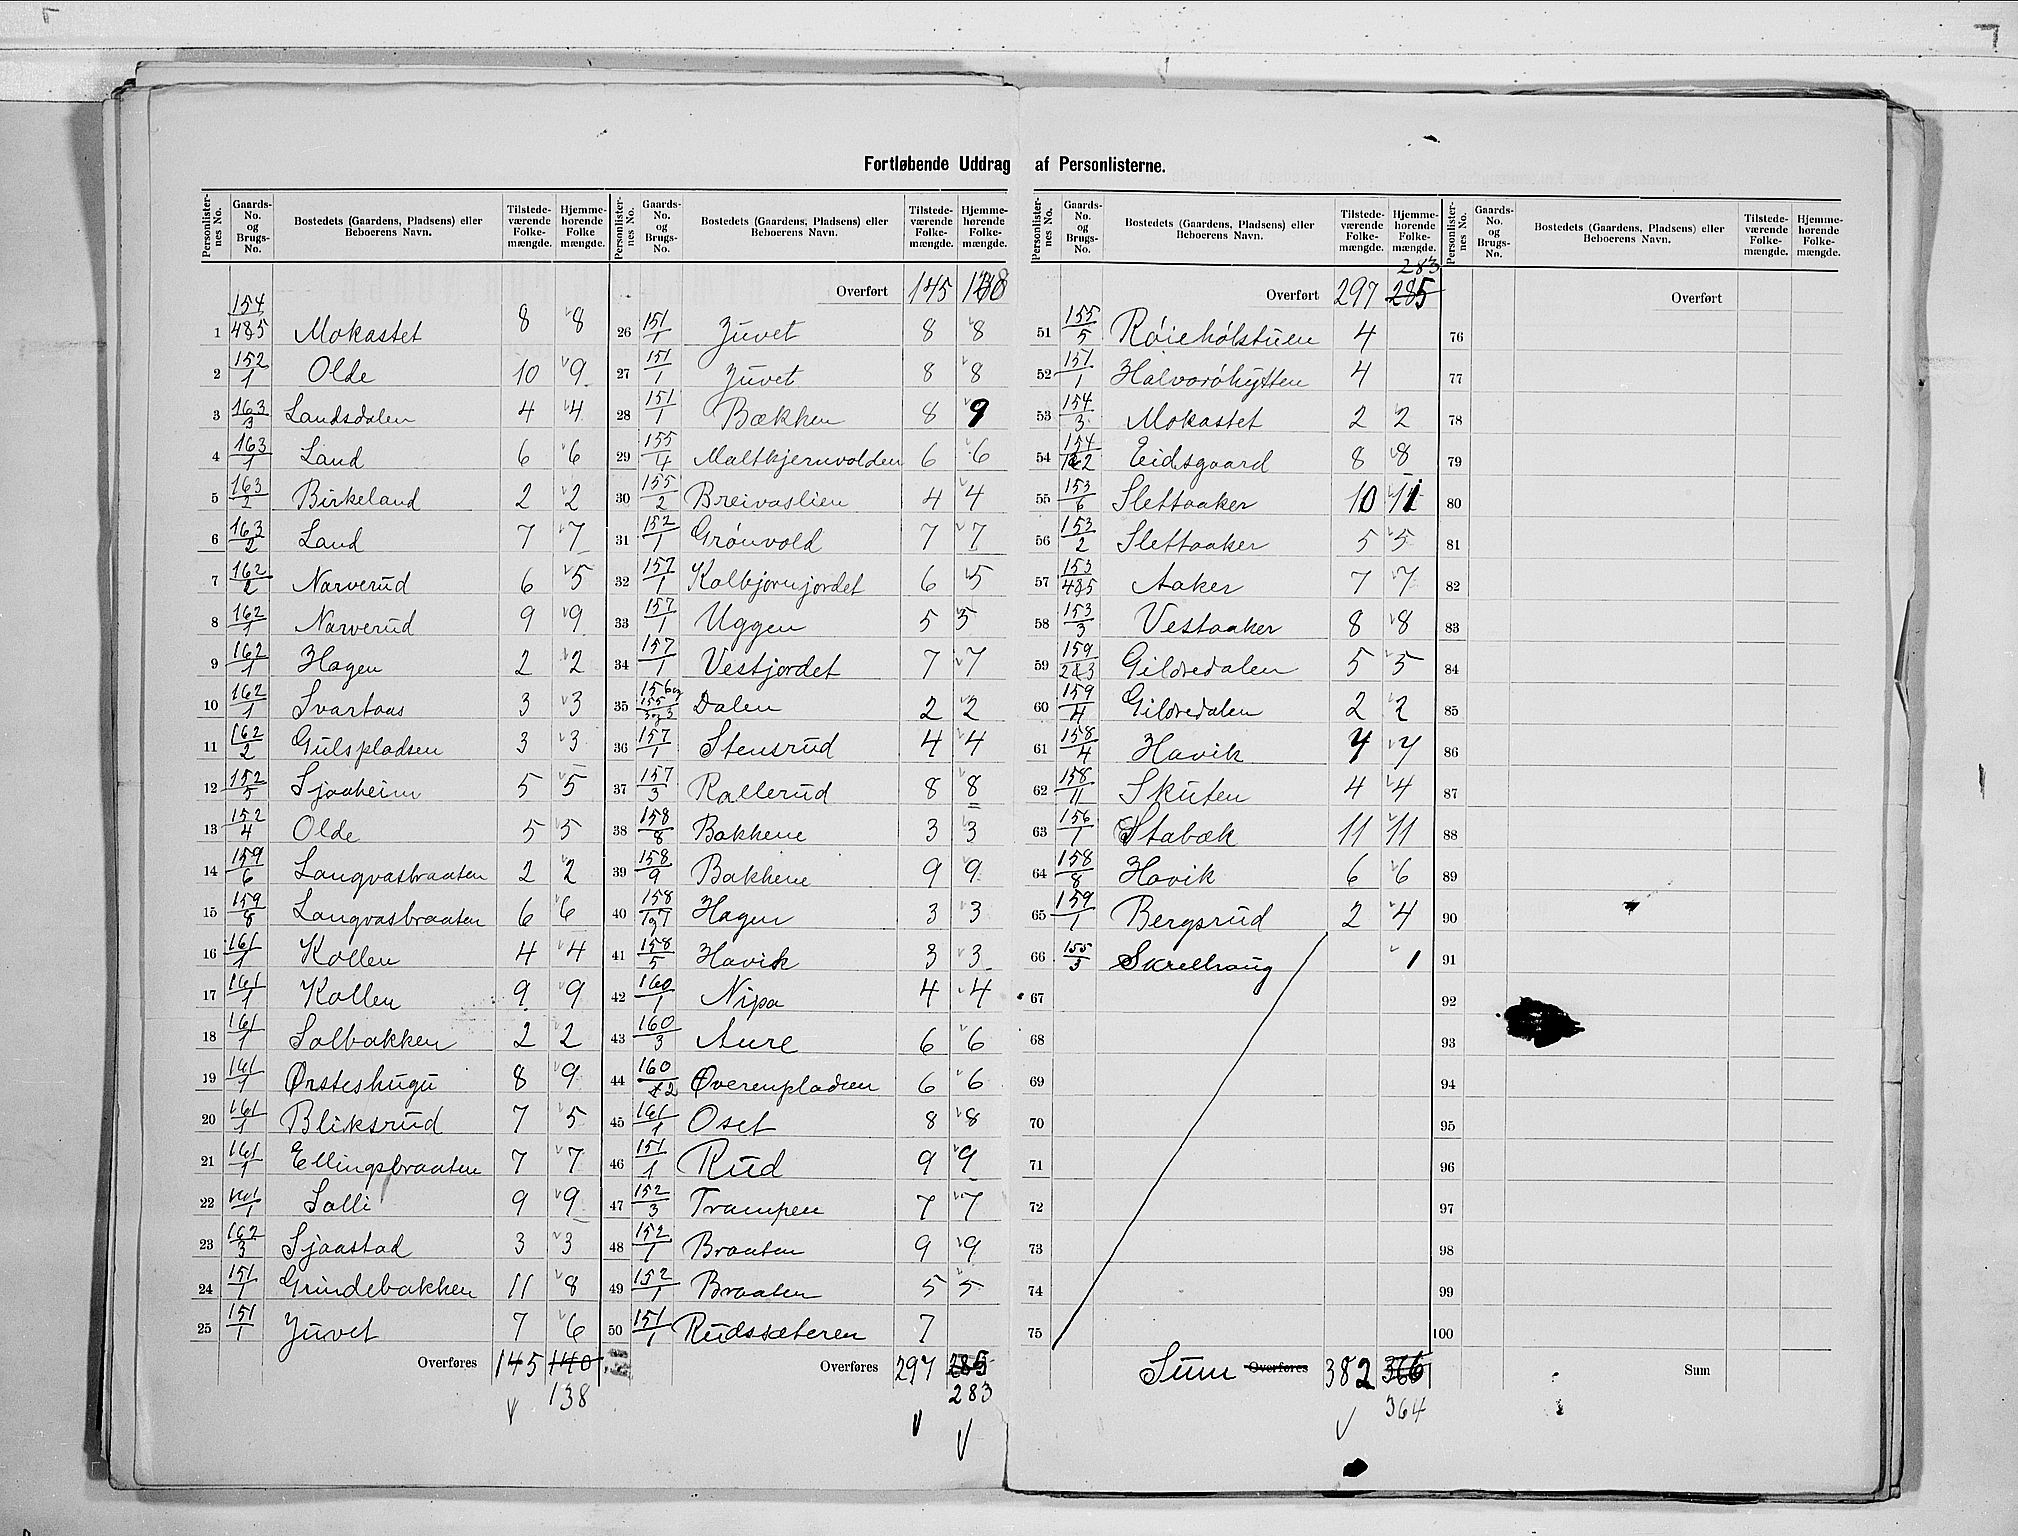 Fortløbende Uddrag af Personlisterne.
Personlister-nes No. | Gaards-No. og Brugs-No. | Bostedets (Gaardens, Pladsens) eller Beboerens Navn. | Tilstede-værende Folke-mængde. | Hjemme-hørende Folke mængde.
1 154/4&5 Mokastet 8 8
2 152/1 Olde 10 9
3 163/3 Landsdalen 4 4
4 163/1 Land 6 6
5 163/2 Birkeland 2 2
6 163/2 Land 7 7
7 162/2 Narverud 6 5
8 162/1 Narverud 9 9
9 162/1 Hagen 2 2
10 162/1 Svartaas 3 3
11 162/2 Gulspladsen 3 3
12 152/5 Sjaaheim 5 5
13 152/4 Olde 5 5
14 159/6 Langvasbraaten 2 2
15 159/8 Langvasbraaten 6 6
16 161/1 Kollen 4 4
17 161/1 Kollen 9 9
18 161/1 Solbakken 2 2
19 161/1 Ørsteshugu 8 9
20 161/1 Bliksrud 7 5
21 161/1 Ellingsbraaten 7 7
22 161/1 Solli 9 9
23 162/3 Sjaastad 3 3
24 151/1 Grindebakken 11 8
25 151/1 Juvet 7 6
Overføres 145 140
138
Personlister-nes No. | Gaards-No. og Brugs-No. | Bostedets (Gaardens, Pladsens) eller Beboerens Navn. | Tilstede-værende Folke-mængde. | Hjemme-hørende Folke-mængde.
Overført 145 138
26 151/1 Juvet 8 8
27 151/1 Juvet 8 8
28 151/1 Bækken 8 9
29 155/4 Maltkjernvolden 6 6
30 155/2 Breivaslien 4 4
31 152/1 Grønvold 7 7
32 157/1 Kolbjørnjordet 6 5
33 157/1 Uggen 5 5
34 157/1 Vestjordet 7 7
35 156 og 155/3 og 3 Dalen 2 2
36 157/1 Stensrud 4 4
37 157/3 Rallerud 8 8
38 158/8 Bakkene 3 3
39 158/9 Bakkene 9 9
40 158/7 Hagen 3 3
41 158/5 Havik 3 3
42 160/1 Nipa 4 4
43 160/3 Aure 6 6
44 160/2 Øverenpladsen 6 6
45 161/1 Oset 8 8
46 151/1 Rud 9 9
47 152/3 Trampen 7 7
48 152/1 Braaten 9 9
49 152/1 Braaten 5 5
50 151/1 Rudssæteren 7
Overføres 297 285
283
Personlister-nes No. | Gaards-No. og Brugs-No. | Bostedets (Gaardens, Pladsens) eller Beboerens Navn. | Tilstede-værende Folke-mængde. | Hjemme-hørende Folke-mængde.
283
Overført 297 285
51 155/5 Røieholstuen 4
52 151/1 Halvorshytten 4
53 154/3 Mokastet 2 2
54 154/1&2 Eidsgaard 8 8
55 153/6 Slettaaker 10 11
56 153/2 Slettaaker 5 5
57 153/4&5 Aaker 7 7
58 153/3 Vestaaker 8 8
59 159/2&3 Gildredalen 5 5
60 159/4 Gildredalen 2 2
61 158/4 Havik 7 7
62 158/11 Skuten 4 4
63 156/1 Stabæk 11 11
64 158/8 Havik 6 6
65 159/1 Bergsrud 2 4
66 155/3 Skrelhaug 1
67
68
69
70
71
72
73
74
75
Sum Overføres 382 366
364
Personlister-nes No. | Gaards-No. og Brugs-No. | Bostedets (Gaardens, Pladsens) eller Beboerens Navn. | Tilstede-værende Folke-mængde. | Hjemme-hørende Folke-mængde.
Overført
76
77
78
79
80
81
82
83
84
85
86
87
88
89
90
91
92
93
94
95
96
97
98
99
100
Sum